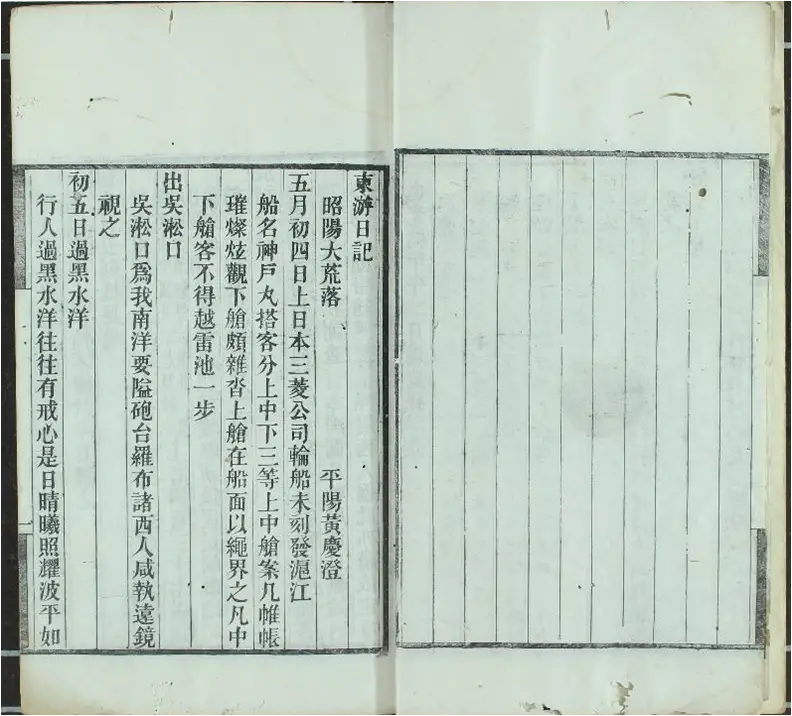 東游日記
昭陽大荒落 平陽黃慶澄
五月初四日上日本三菱公司輪船未刻發滬江
船名神戶丸搭客分上中下三等上中艙案几帷帳
璀燦炫觀下艙頗雜沓上艙在船面以繩界之凡中
下艙客不得越雷池一步
出吳淞口
吳淞口爲我南洋要隘砲台羅布諸西人咸執遠鏡
視之
初五日過黑水洋
行人過黑水洋往往有戒心是日晴曦照耀波平如